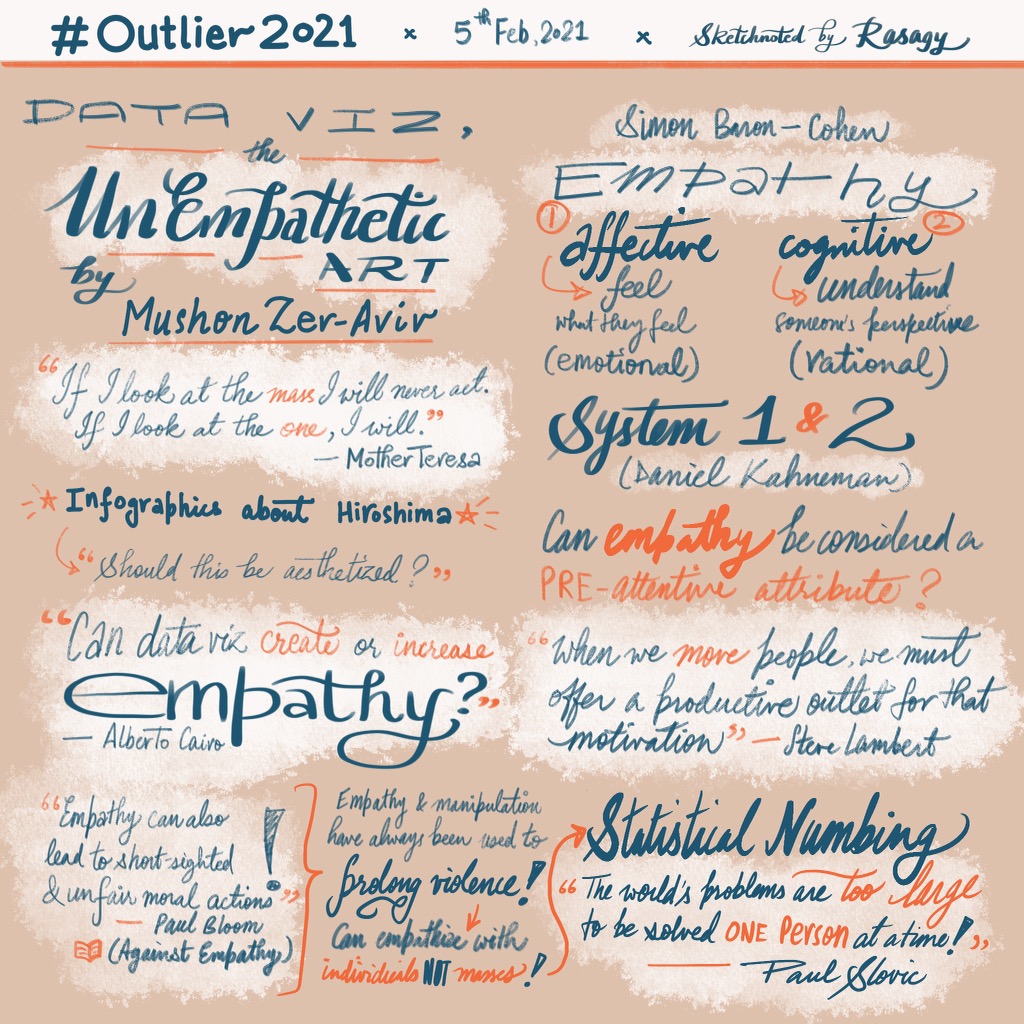 #Outlier2021 × 5th Feb, 2021 × Sketchnoted by Rasagy
DATA VIZ,
the
UnEmpathetic
by ART
Mushon Zer-Aviv
“If I look at the mass I will never act.
If I look at the one, I will.”
— Mother Teresa
Infographics about Hiroshima
“Should this be aesthetized?”
“Can data viz create or increase
empathy?”
— Alberto Cairo
“Empathy can also
lead to short-sighted
& unfair moral actions!”
— Paul Bloom
(Against Empathy)
Empathy & manipulation
have always been used to
prolong violence!
Can empathize with
individuals NOT masses!
Simon Baron-Cohen
Empathy
1 affective
feel
what they feel
(emotional)
cognitive 2
understand
someone's perspective
(rational)
System 1 & 2
(Daniel Kahneman)
Can empathy be considered a
PRE-attentive attribute?
“When we move people, we must
offer a productive outlet for that
motivation” — Steve Lambert
Statistical Numbing
“The world's problems are too large
to be solved ONE Person at a time!”
— Paul Slovic